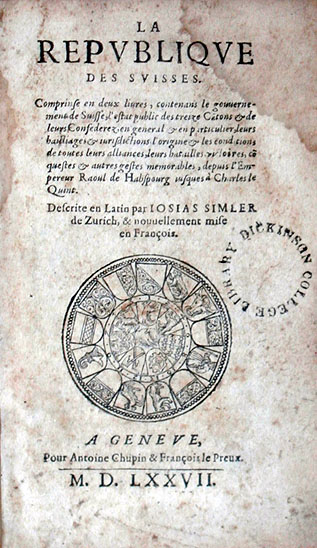 LA
REPVBLIQVE
DES SVISSES.
Comprinse en deux liures, contenans le gouuerne-
ment de Suisse, l'estat public des treize Cãtons & de
leurs Confederez, en general & en particulier, leurs
bailliages & iurisdictions, l'origine & les conditions
de toutes leurs alliances, leurs batailles, victoires, cõ
questes & autres gestes memorables, depuis l'Em-
pereur Raoul de Habspourg iusques à Charles le
Quint.
Descrite en Latin par IOSIAS SIMLER
de Zurich, & nouuellement mise
en François.
DICKINSON COLLEGE LIBRARY
A GENEVE,
Pour Antoine Chupin & François le Preux.
M. D. LXXVII.